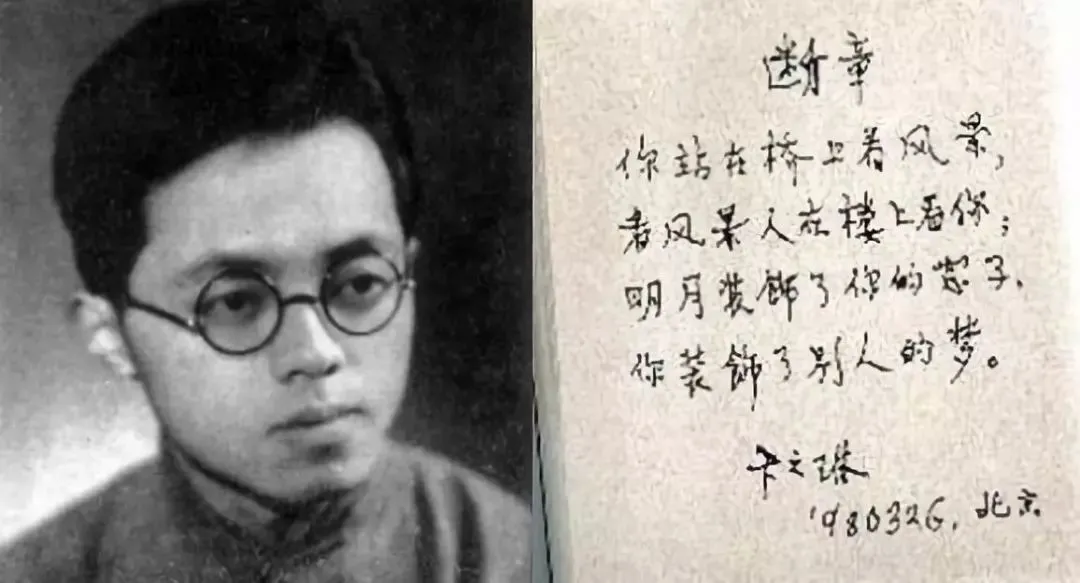 断章
你站在桥上看风景，
看风景人在楼上看你；
明月装饰了你的窗子，
你装饰了别人的梦。
卞之琳
1980326，北京